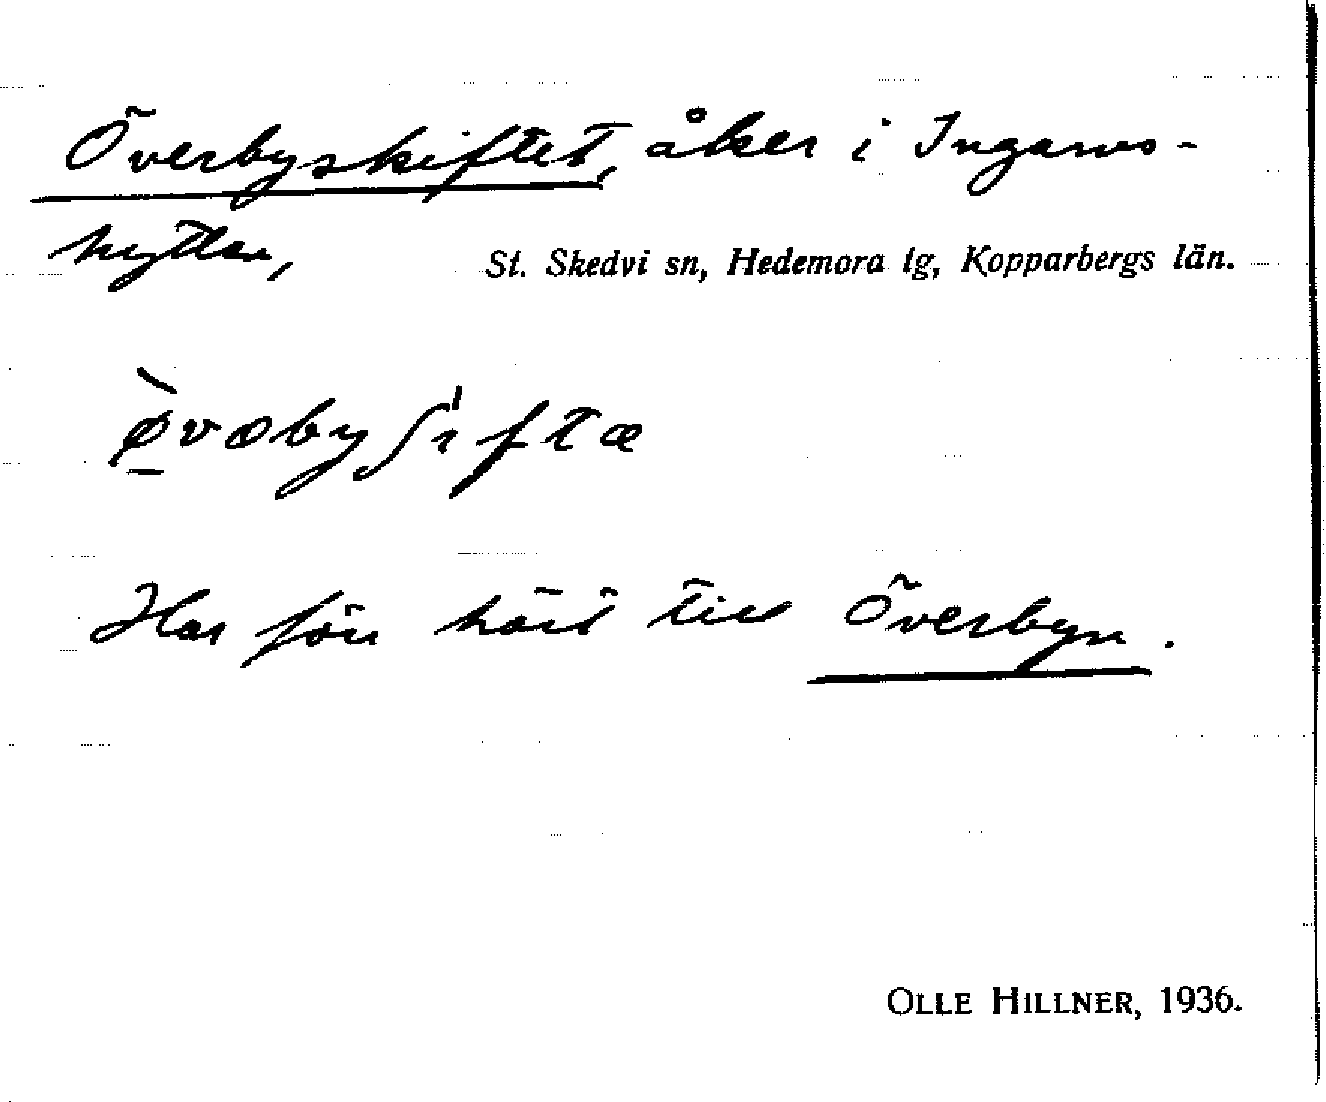 Överbyskiftet, åker i Ingarvs-
hyttan, St. Skedvi sn, Hedemora tg, Kopparbergs län.
Har förr hört till Överbyn.
OLLE HILLNER, 1936.